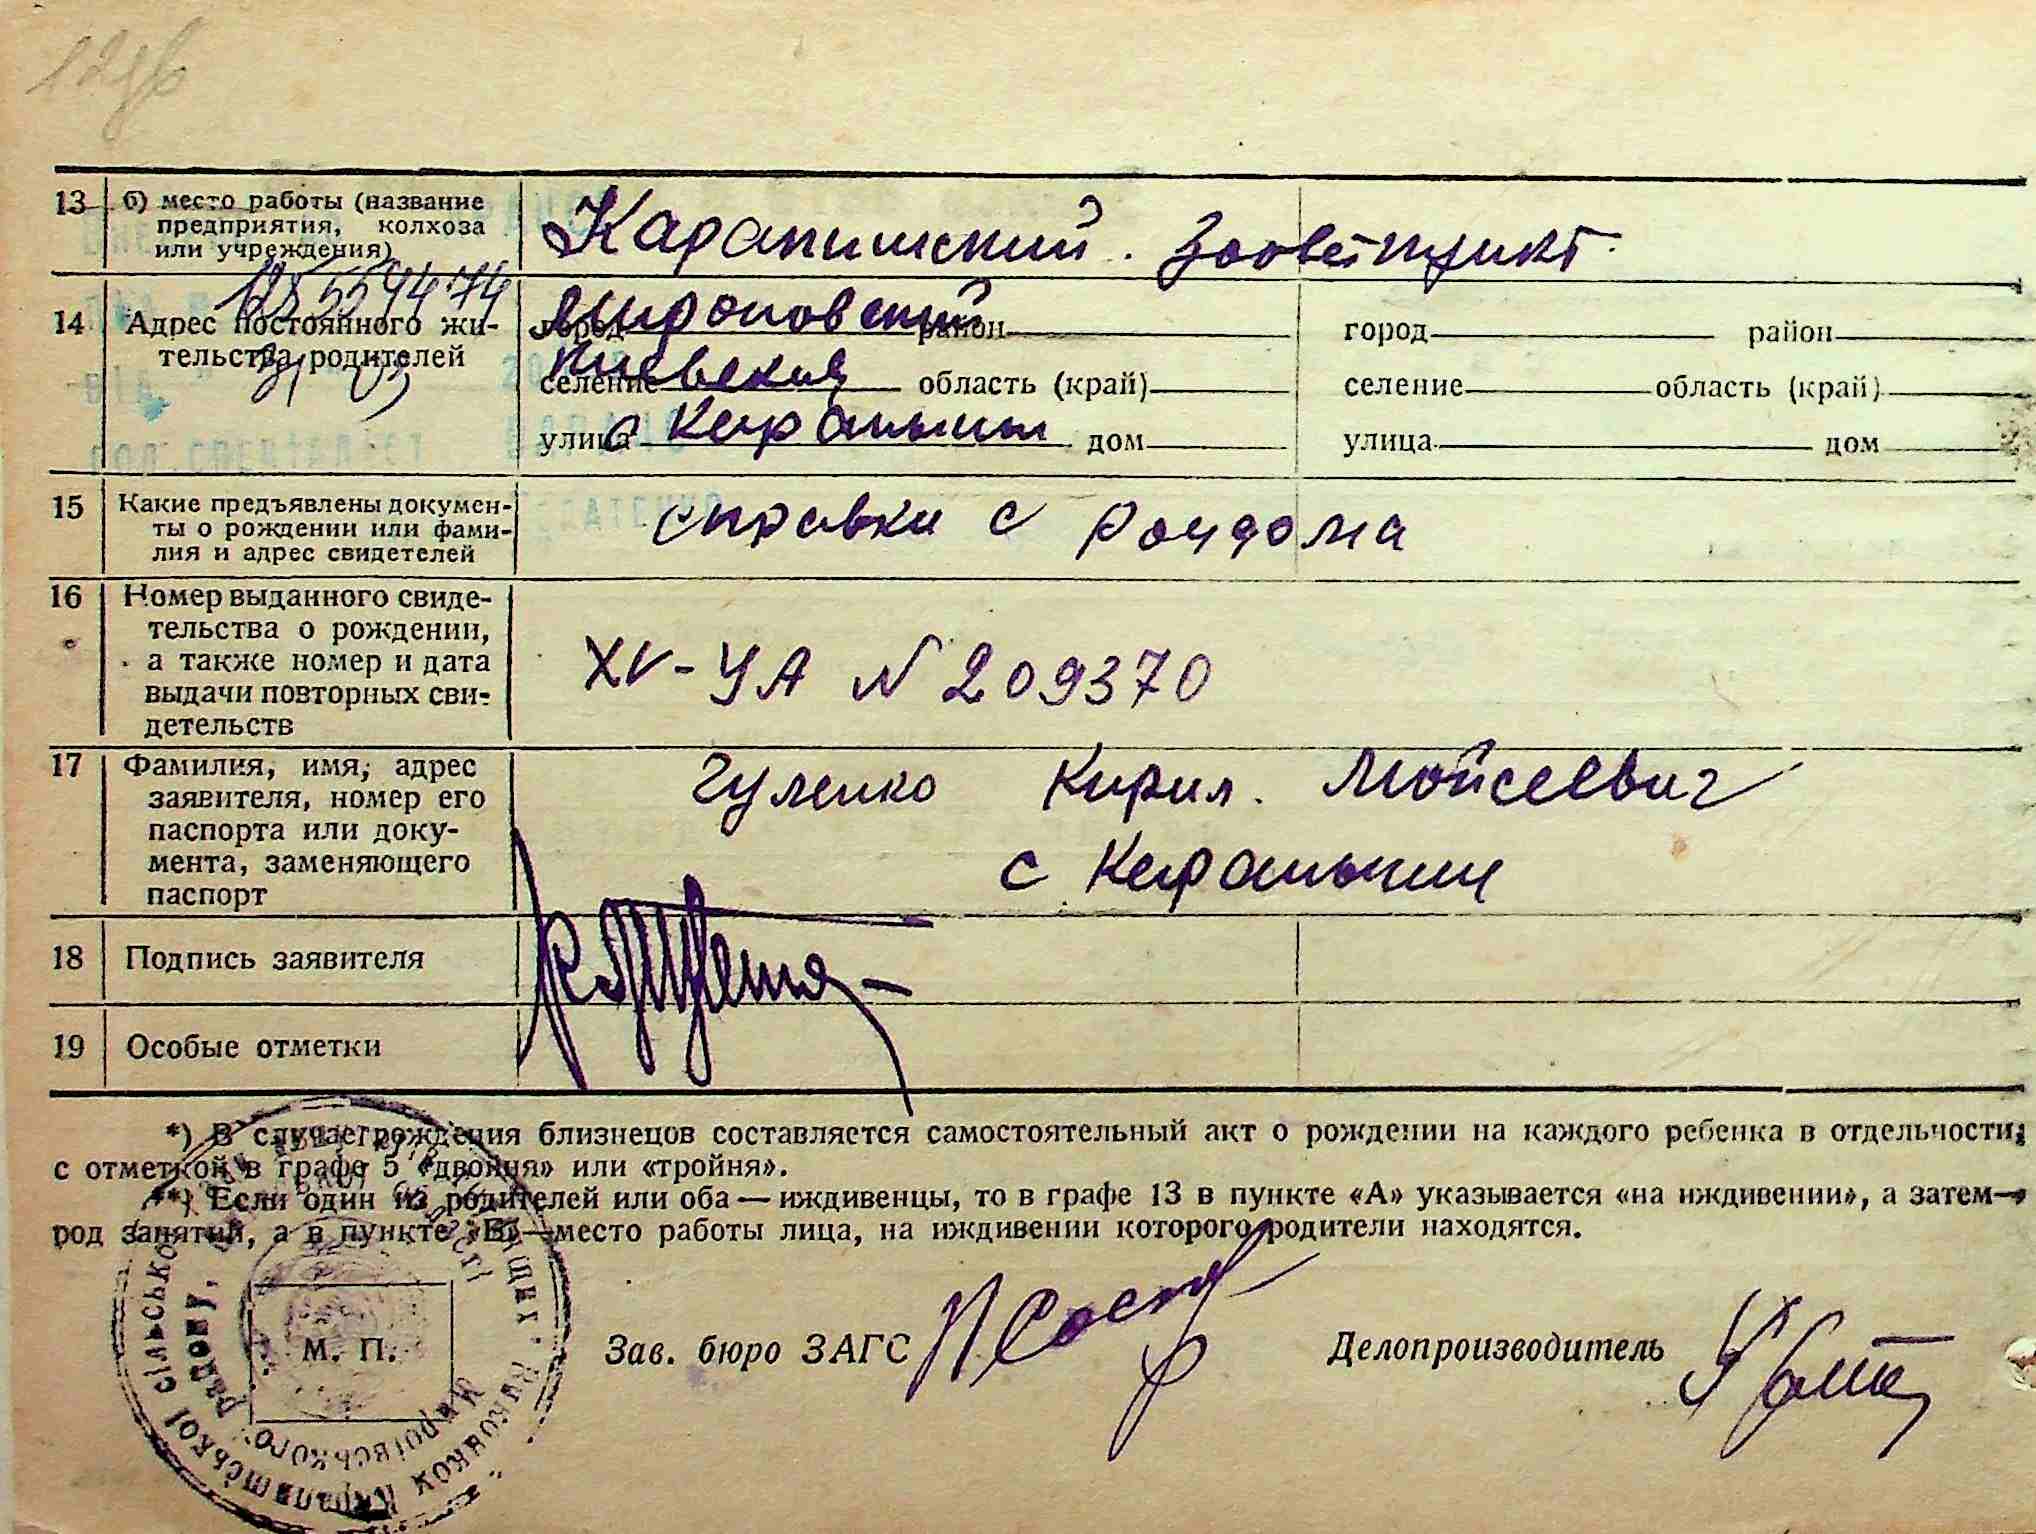 13 б) место работы (название
предприятия, колхоза
или учреждения)
Карапишский. Зооветпункт.
14 Адрес постоянного жи-
тельства родителей
Мироновский
город район город район
Киевская
селение область (край) селение область (край)
с Карапыши
улица дом улица дом
15 Какие предъявлены докумен-
ты о рождении или фами-
лия и адрес свидетелей
справки с роддома
16 Номер выданного свиде-
тельства о рождении,
а также номер и дата
выдачи повторных сви-
детельств
XV-УА N 209370
17 Фамилия, имя, адрес
заявителя, номер его
паспорта или доку-
мента, заменяющего
паспорт
Гуленко Кирил. Мойсеевич
с Карапыши
18 Подпись заявителя
19 Особые отметки
*) В случае рождения близнецов составляется самостоятельный акт о рождении на каждого ребенка в отдельности,
с отметкой в графе 5 «двойня» или «тройня».
**) Если один из родителей или оба — иждивенцы, то в графе 13 в пункте «А» указывается «на иждивении», а затем—
род занятий, а в пункте «Б»—место работы лица, на иждивении которого родители находятся.
М. П.
Зав. бюро ЗАГС
Делопроизводитель